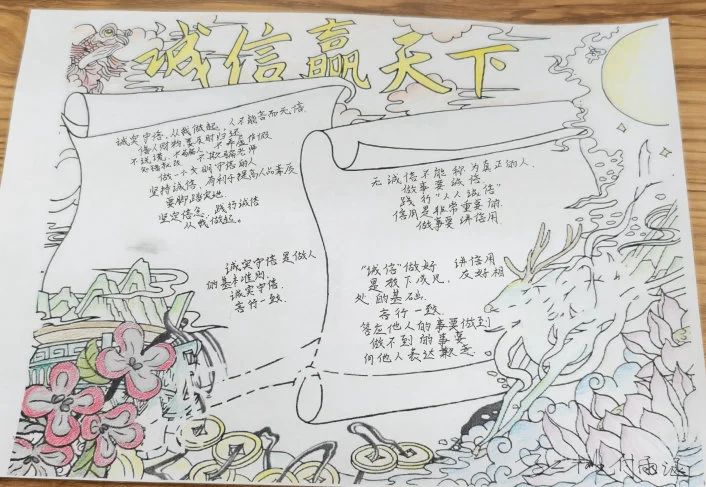 诚信赢天下
诚实守信，从我做起，人不能言而无信
借人财物要及时归还
不说谎，不骗人，不弄虚作假
知错就改 不欺骗老师
做一个文明守信的人
坚持诚信，有利于提高人品素质
要脚踏实地
坚定信念，践行诚信
从我做起。
诚实守信是做人
的基本准则.
诚实守信.
言行一致.
无诚信不能称为真正的人.
做事要诚信
践行"人人诚信"
信用是非常重要的.
做事要讲信用
"诚信"做好 讲信用
是放下成见，友好相
处的基础.
言行一致.
答应他人的事要做到
做不到的事要
向他人表达歉意